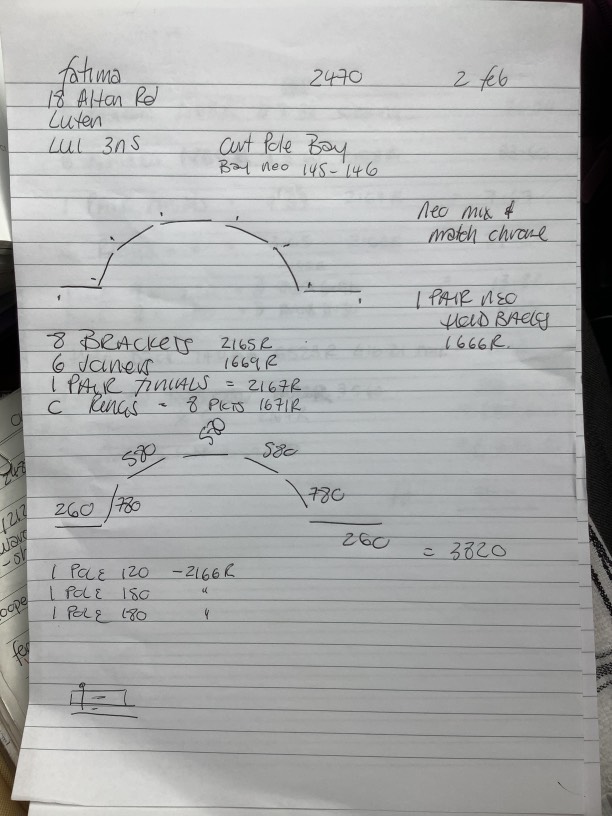 fatima 2470 2 feb
18 Alton Rd
Luten
LU1 3nS Curt Pole Bay
Bay neo 145-146
Neo mix &
match chrome
1 PAIR NEO
HOLD BACKS
1666R.
8 BRACKETS 2165R
6 Joiners 1669R
1 PAIR FINIALS = 2167R
C RINGS = 8 PKTS 1671R
580
580 580
260 780 780
260 = 3820
1 POLE 120 - 2166R
1 POLE 180 "
1 POLE 180 "